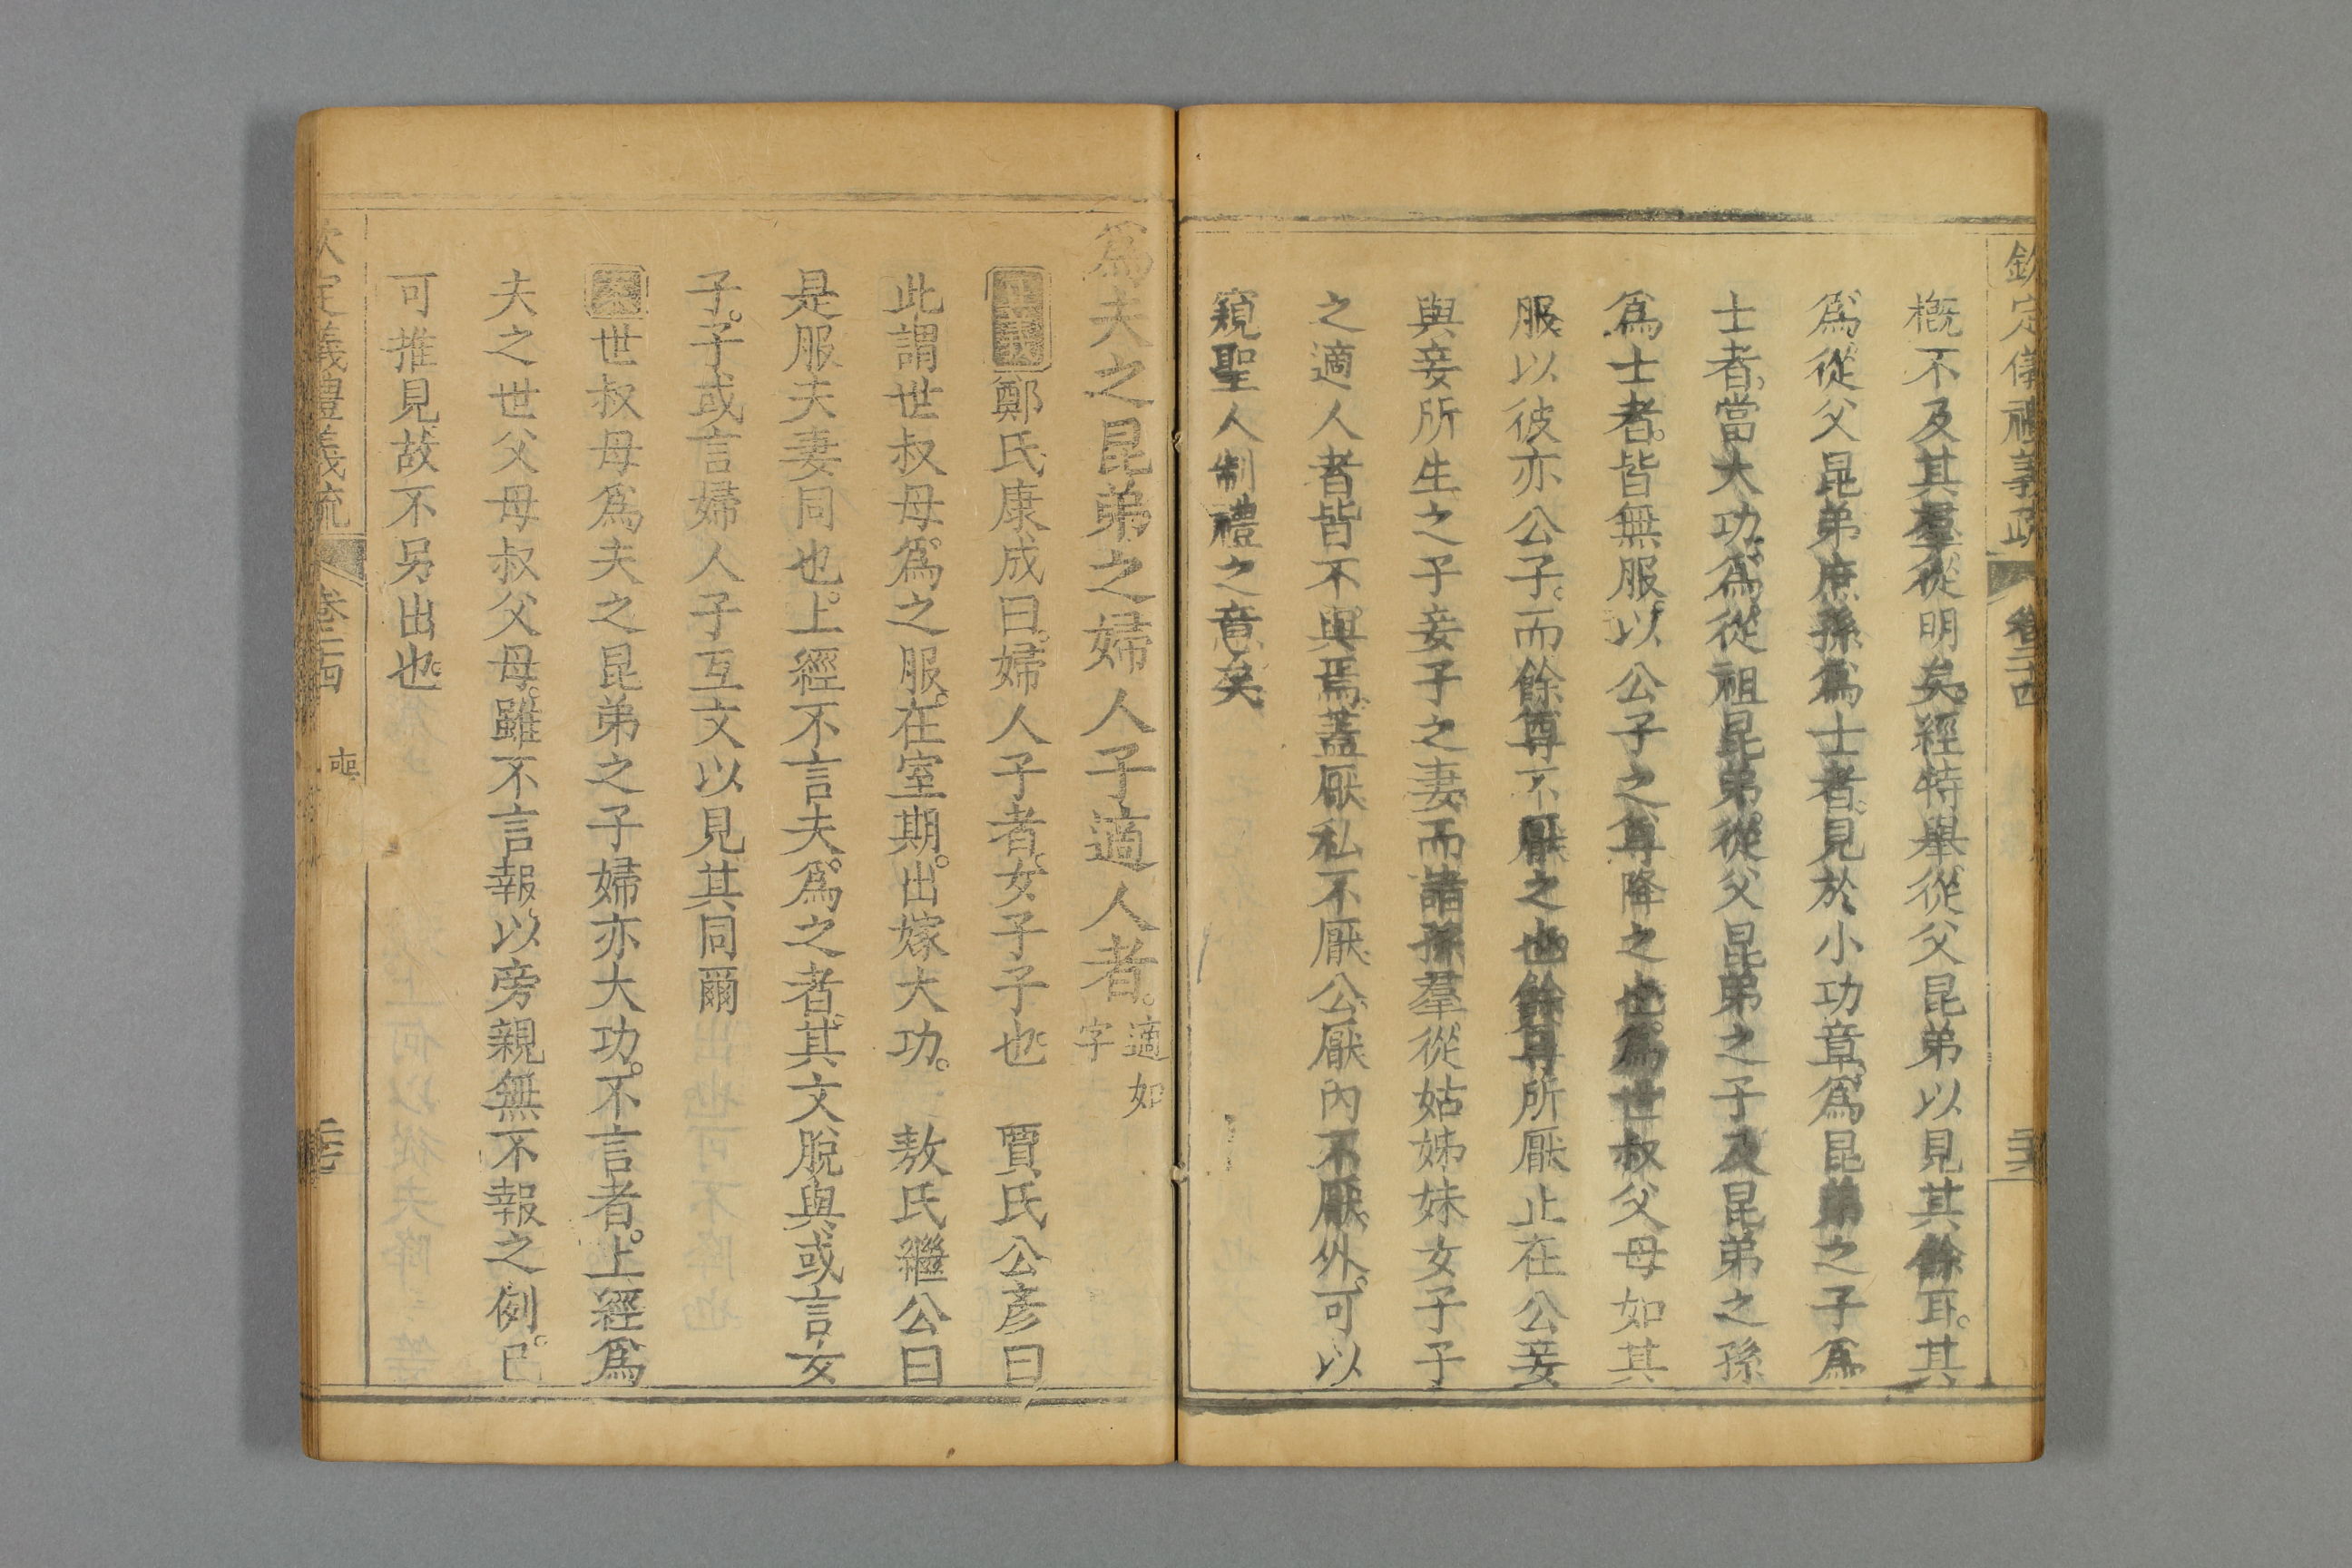 欽定儀禮義疏 卷二十四
槪不及其羣從明矣。經特舉從父昆弟以見其餘耳。其
爲從父昆弟庶孫爲士者。見於小功章。爲昆弟之子爲
士者。當大功。爲從祖昆弟。從父昆弟之子及昆弟之孫
爲士者。皆無服。以公子之尊降之也。爲世叔父母如其
服以彼亦公子。而餘尊不厭之也。餘尊所厭止在公妾
與妾所生之子妾子之妻。而諸孫羣從姑姊妹女子子
之適人者皆不與焉。蓋厭私不厭公。厭內不厭外。可以
窺聖人制禮之意矣
爲夫之昆弟之婦人子適人者。適如字
正義鄭氏康成曰。婦人子者。女子子也 賈氏公彥曰
此謂世叔母。爲之服。在室期。出嫁大功。 敖氏繼公曰
是服夫妻同也。上經不言夫。爲之者。其文脫與。或言女
子。子。或言婦人子互文以見其同爾
案世叔母爲夫之昆弟之子婦亦大功。不言者。上經爲
夫之世父母叔父母。雖不言報。以旁親無不報之例。已
可推見。故不另出也。
欽定儀禮義疏 卷二十四